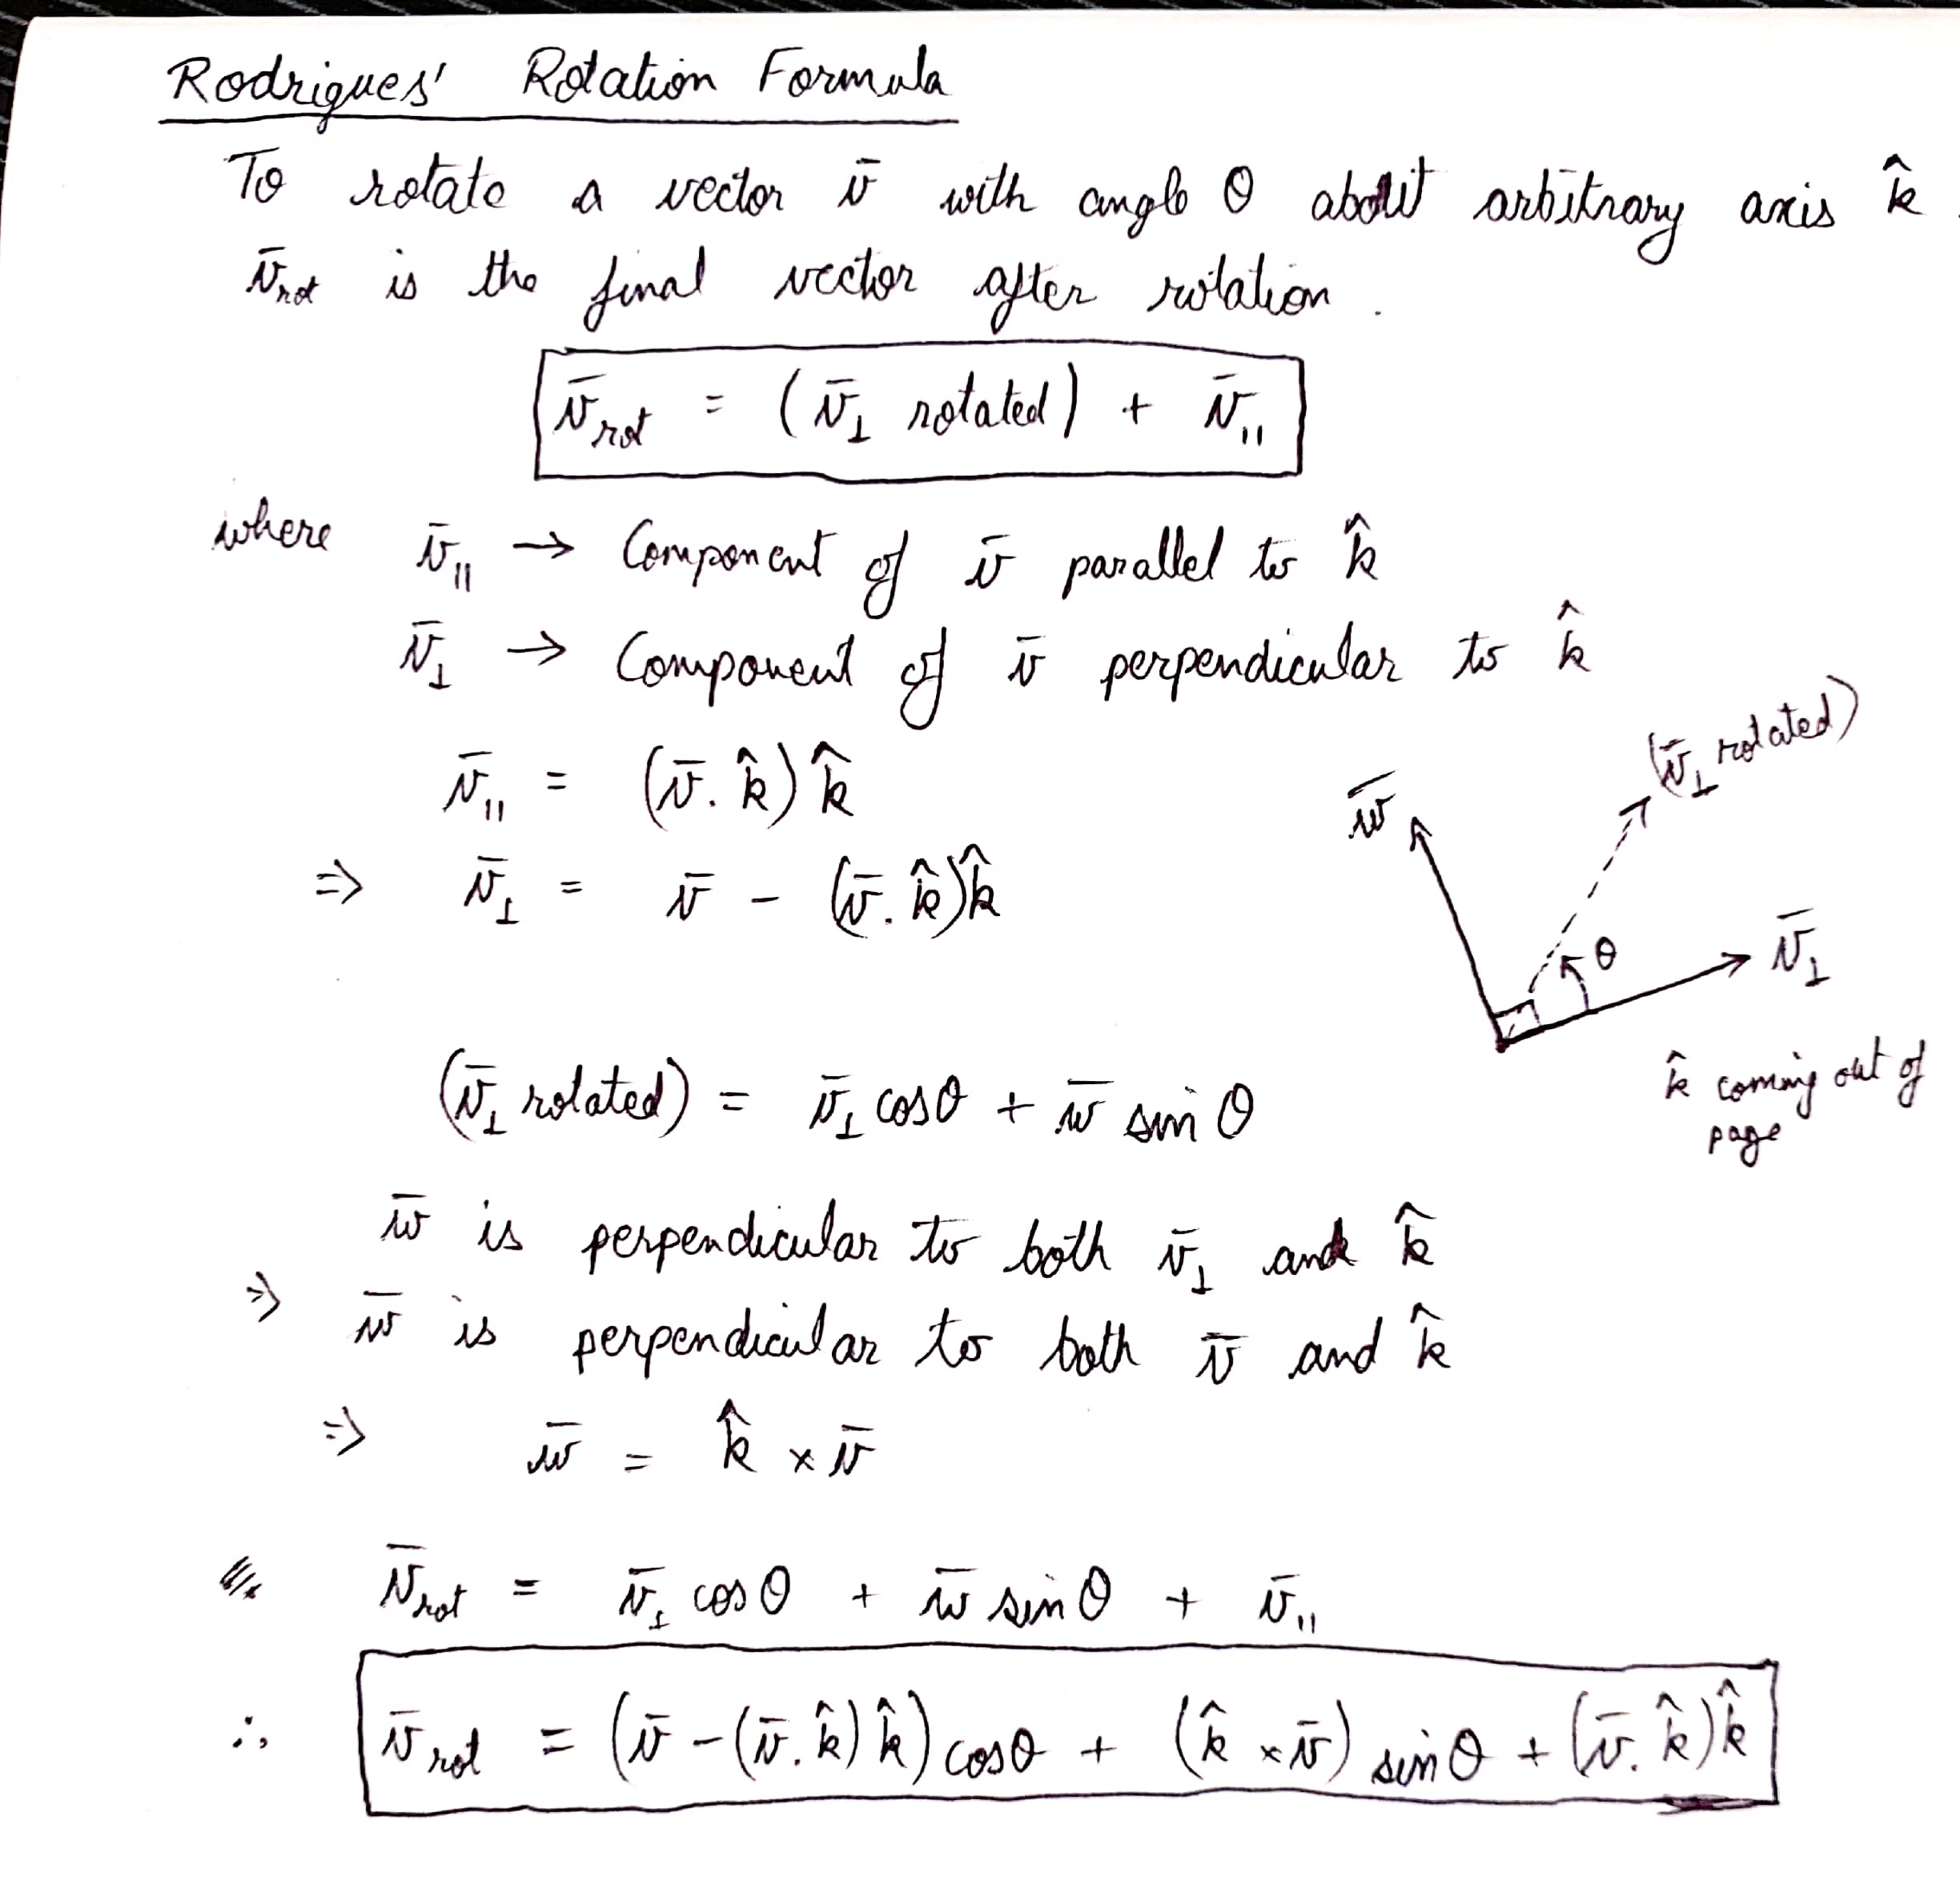 Rodrigues' Rotation Formula
To rotate a vector v̄ with angle θ about arbitrary axis k̂.
v̄rot is the final vector after rotation.
v̄rot = (v̄⊥ rotated) + v̄||
where v̄|| → Component of v̄ parallel to k̂
v̄⊥ → Component of v̄ perpendicular to k̂
v̄|| = (v̄.k̂)k̂
⇒ v̄⊥ = v̄ - (v̄.k̂)k̂
w̄
(v̄⊥ rotated)
θ
v̄⊥
k̂ coming out of
page
(v̄⊥ rotated) = v̄⊥ cosθ + w̄ sinθ
w̄ is perpendicular to both v̄⊥ and k̂
⇒ w̄ is perpendicular to both v̄ and k̂
⇒ w̄ = k̂ × v̄
v̄rot = v̄⊥ cosθ + w̄ sinθ + v̄||
∴ v̄rot = (v̄-(v̄.k̂)k̂)cosθ + (k̂ × v̄) sinθ + (v̄.k̂)k̂